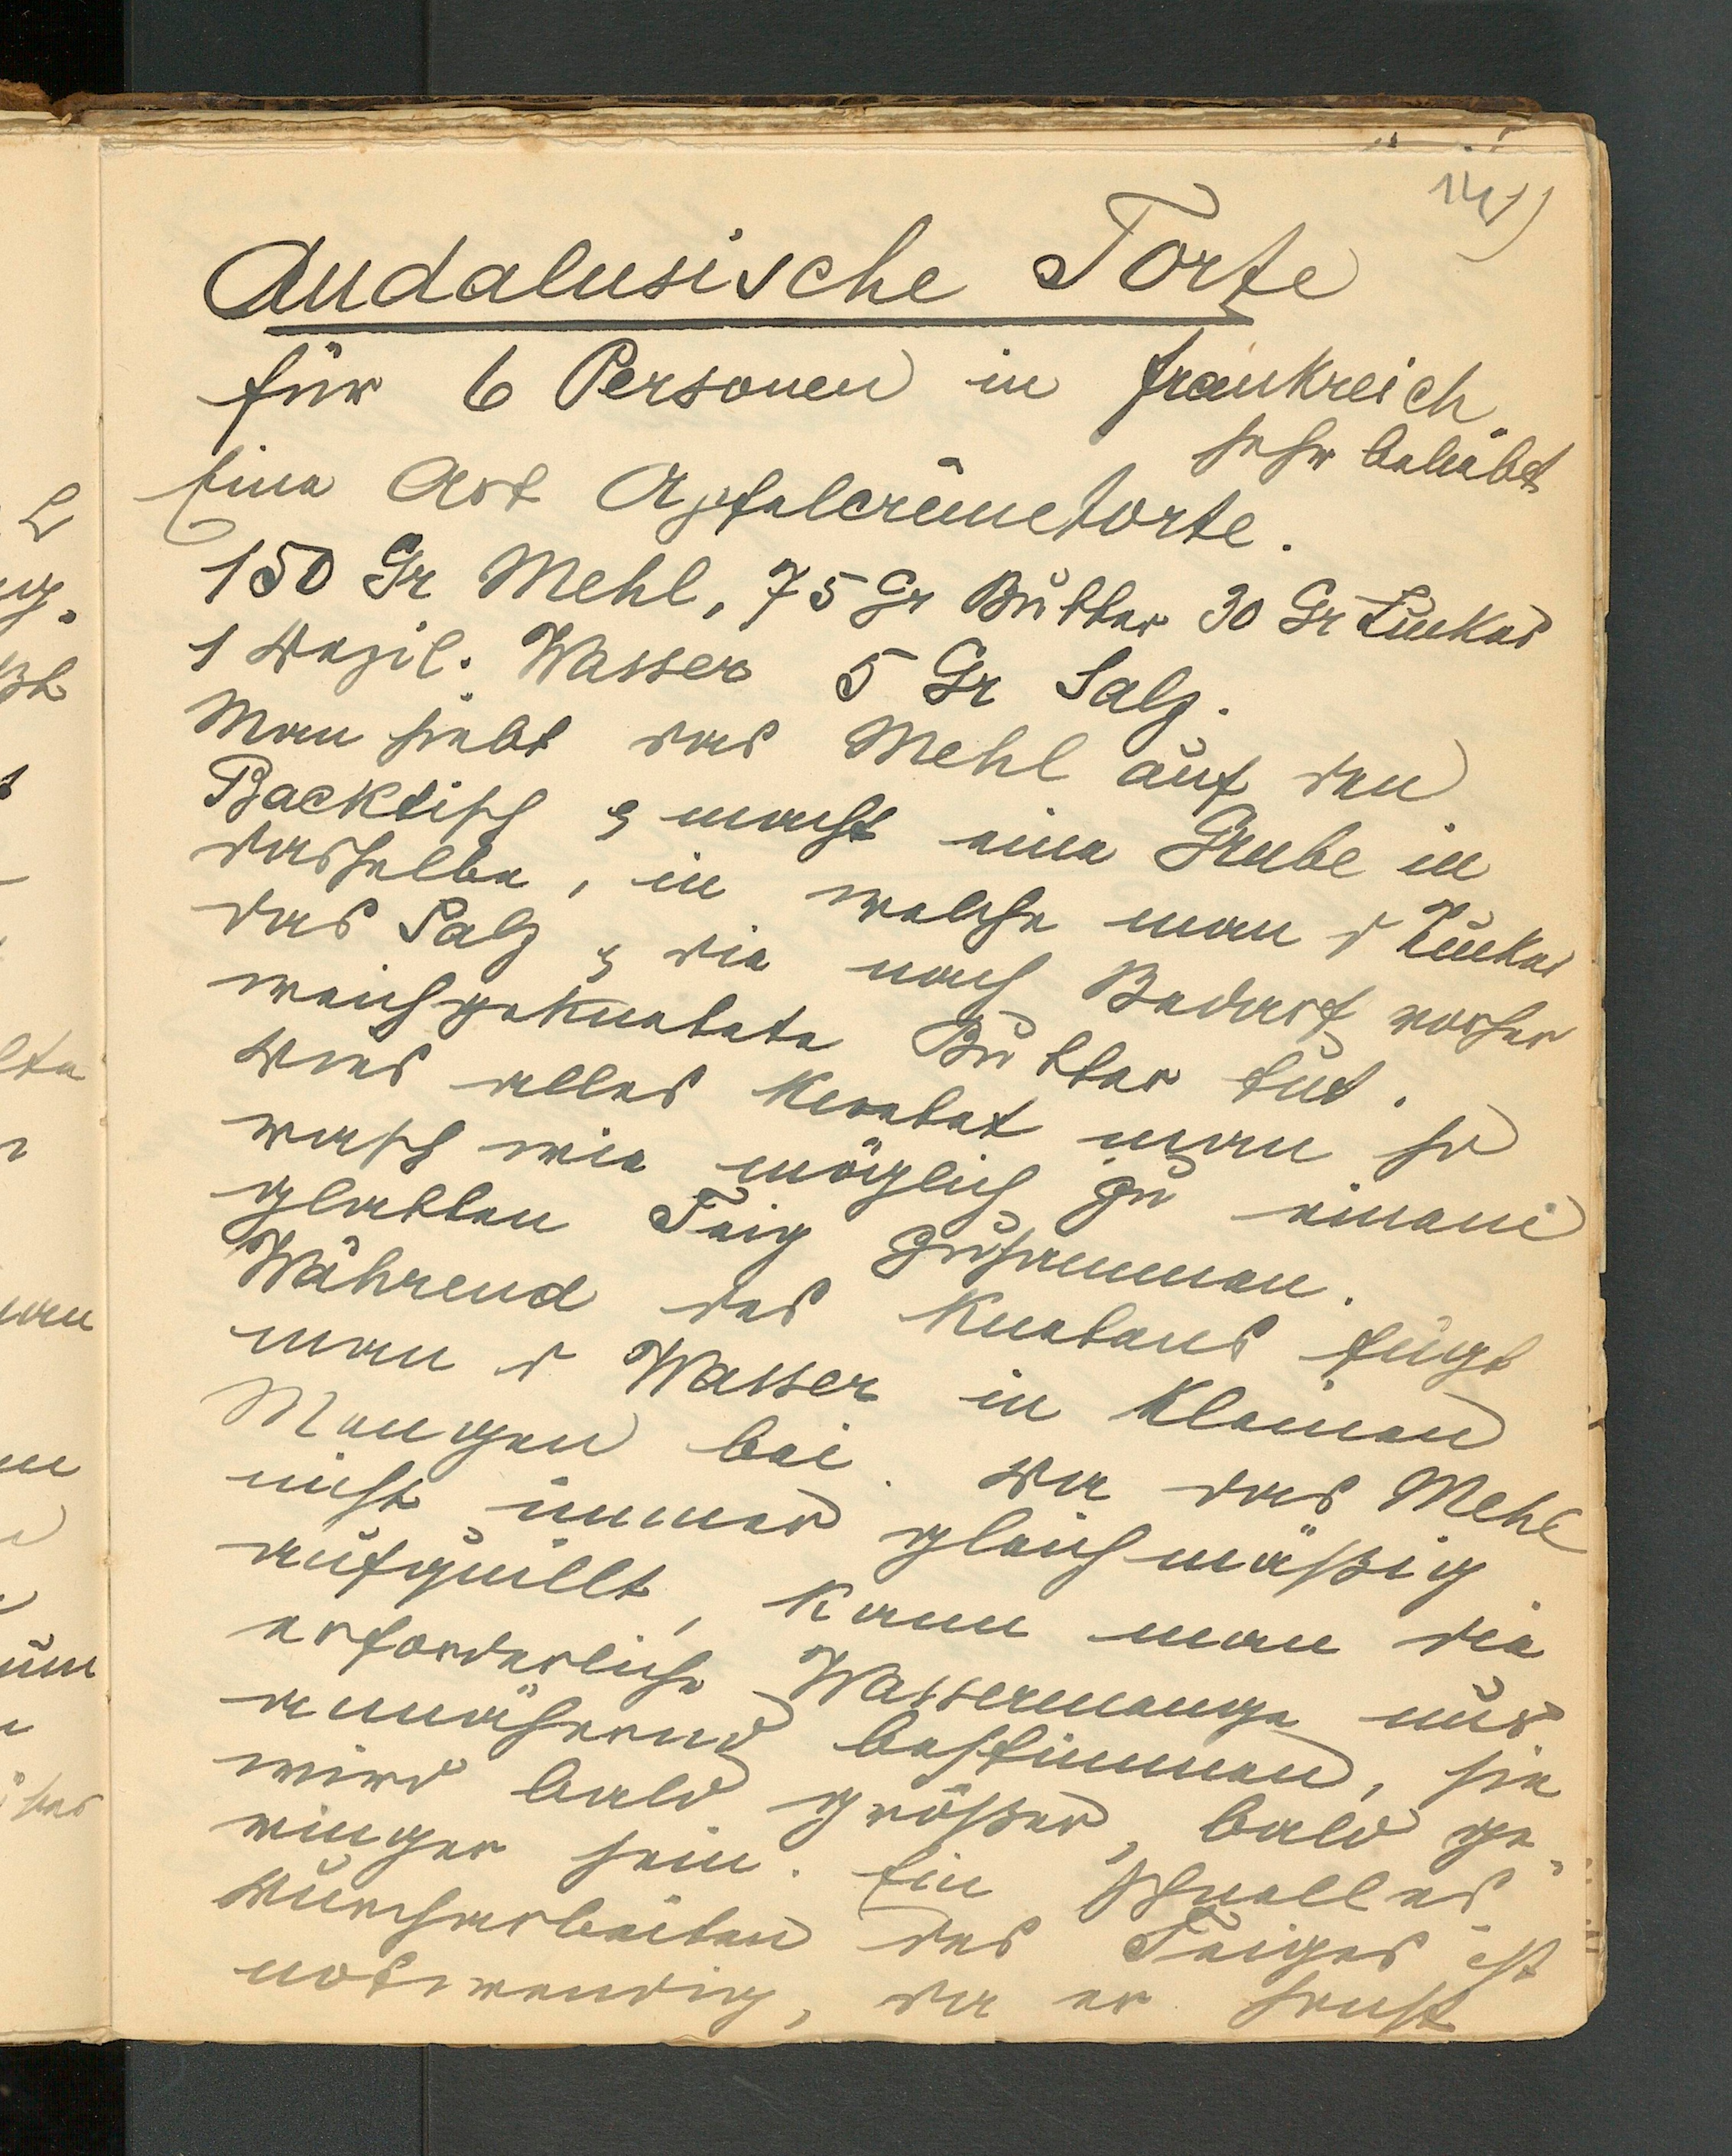 14)
Andalusische Torte
für 6 Personen in Frankreich
sehr beliebt
Eine Art Apfelcrèmetorte.
150 Gr Mehl, 75 Gr Butter 30 Gr Zucker
1 Dezil. Wasser 5 Gr Salz.
Man siebt das Mehl auf den
Backtisch & macht eine Grube in
dasselbe, in welche man d Zucker
das Salz & die nach Bedarf vorher
weichgeknetete Butter tut.
Dies alles knetet man so
rasch wie möglich zu einem
glatten Teig zusammen.
Während des Knetens fügt
man d Wasser in kleinen
Mengen bei. Da das Mehl
nicht immer gleichmäßig
aufquillt, kann man die
erforderliche Wassermenge nur
annähernd bestimmen, sie
wird bald größer, bald ge-
ringer sein. Ein schnelles
Durcharbeiten des Teiges ist
notwendig, da er sonst